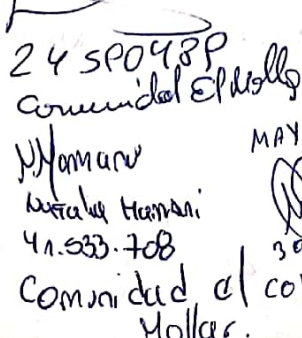 24SP048P
Comunidad El Mollar
MMamani
MAY
Natalia Mamani
41.533.708
30
Comunidad el co
Mollar.